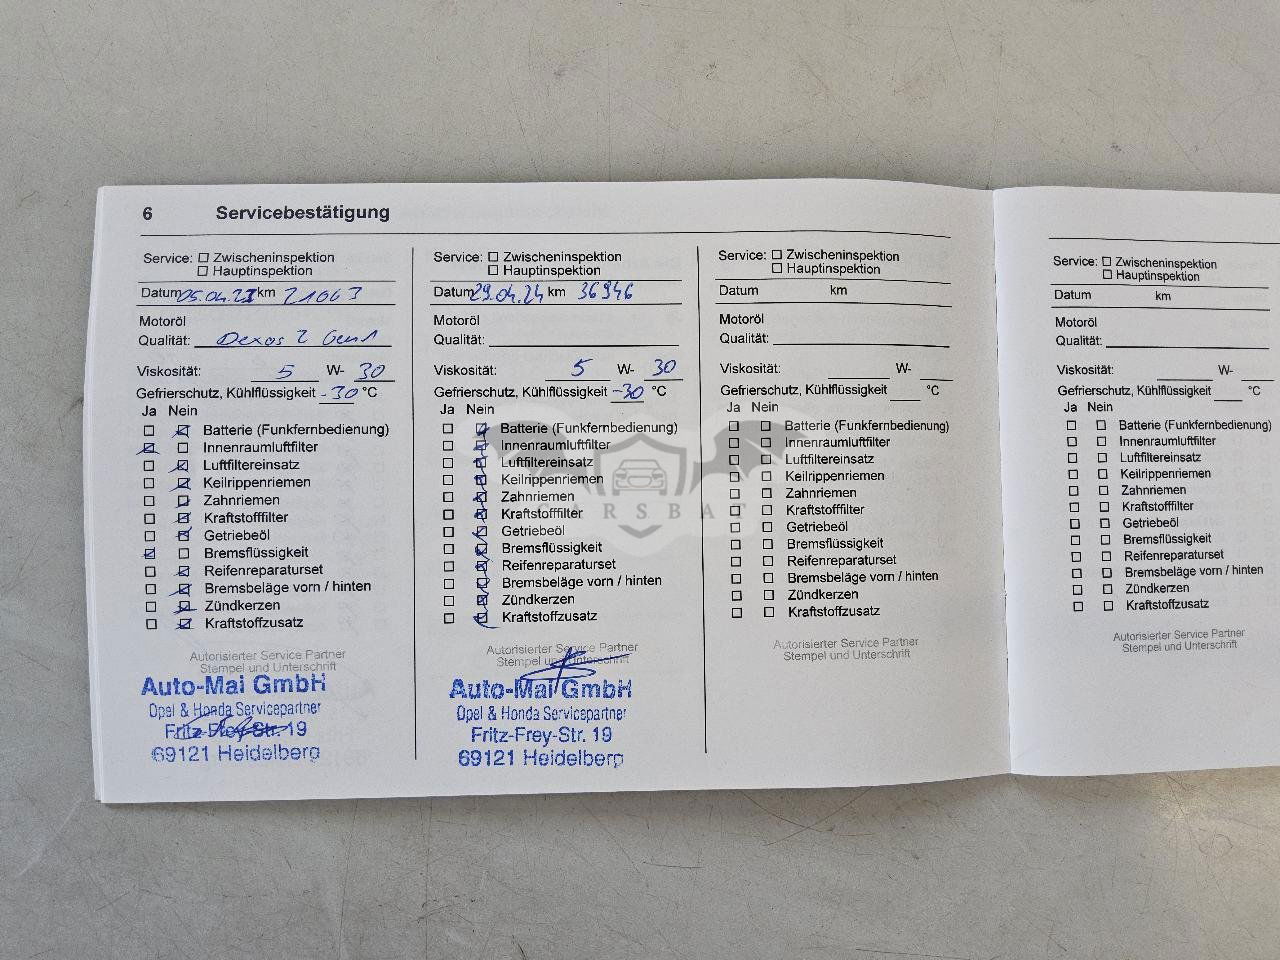 6 Servicebestätigung
Service: ☐ Zwischeninspektion
☐ Hauptinspektion
Datum 05.04.23 km 21063
Motoröl
Qualität: Dexos 2 Gen1
Viskosität: 5 W- 30
Gefrierschutz, Kühlflüssigkeit -30 °C
Ja Nein
Batterie (Funkfernbedienung)
Innenraumluftfilter
Luftfiltereinsatz
Keilrippenriemen
Zahnriemen
Kraftstofffilter
Getriebeöl
Bremsflüssigkeit
Reifenreparaturset
Bremsbeläge vorn / hinten
Zündkerzen
Kraftstoffzusatz
Autorisierter Service Partner
Stempel und Unterschrift
Auto-Mai GmbH
Opel & Honda Servicepartner
Fritz-Frey-Str. 19
69121 Heidelberg
Service: ☐ Zwischeninspektion
☐ Hauptinspektion
Datum 29.04.24 km 36946
Motoröl
Qualität:
Viskosität: 5 W- 30
Gefrierschutz, Kühlflüssigkeit -30 °C
Ja Nein
Batterie (Funkfernbedienung)
Innenraumluftfilter
Luftfiltereinsatz
Keilrippenriemen
Zahnriemen
Kraftstofffilter
Getriebeöl
Bremsflüssigkeit
Reifenreparaturset
Bremsbeläge vorn / hinten
Zündkerzen
Kraftstoffzusatz
Autorisierter Service Partner
Stempel und Unterschrift
Auto-Mai GmbH
Opel & Honda Servicepartner
Fritz-Frey-Str. 19
69121 Heidelberg
CARSBAT
Service: ☐ Zwischeninspektion
☐ Hauptinspektion
Datum km
Motoröl
Qualität:
Viskosität: W-
Gefrierschutz, Kühlflüssigkeit °C
Ja Nein
Batterie (Funkfernbedienung)
Innenraumluftfilter
Luftfiltereinsatz
Keilrippenriemen
Zahnriemen
Kraftstofffilter
Getriebeöl
Bremsflüssigkeit
Reifenreparaturset
Bremsbeläge vorn / hinten
Zündkerzen
Kraftstoffzusatz
Autorisierter Service Partner
Stempel und Unterschrift
Service: ☐ Zwischeninspektion
☐ Hauptinspektion
Datum km
Motoröl
Qualität:
Viskosität: W-
Gefrierschutz, Kühlflüssigkeit °C
Ja Nein
Batterie (Funkfernbedienung)
Innenraumluftfilter
Luftfiltereinsatz
Keilrippenriemen
Zahnriemen
Kraftstofffilter
Getriebeöl
Bremsflüssigkeit
Reifenreparaturset
Bremsbeläge vorn / hinten
Zündkerzen
Kraftstoffzusatz
Autorisierter Service Partner
Stempel und Unterschrift